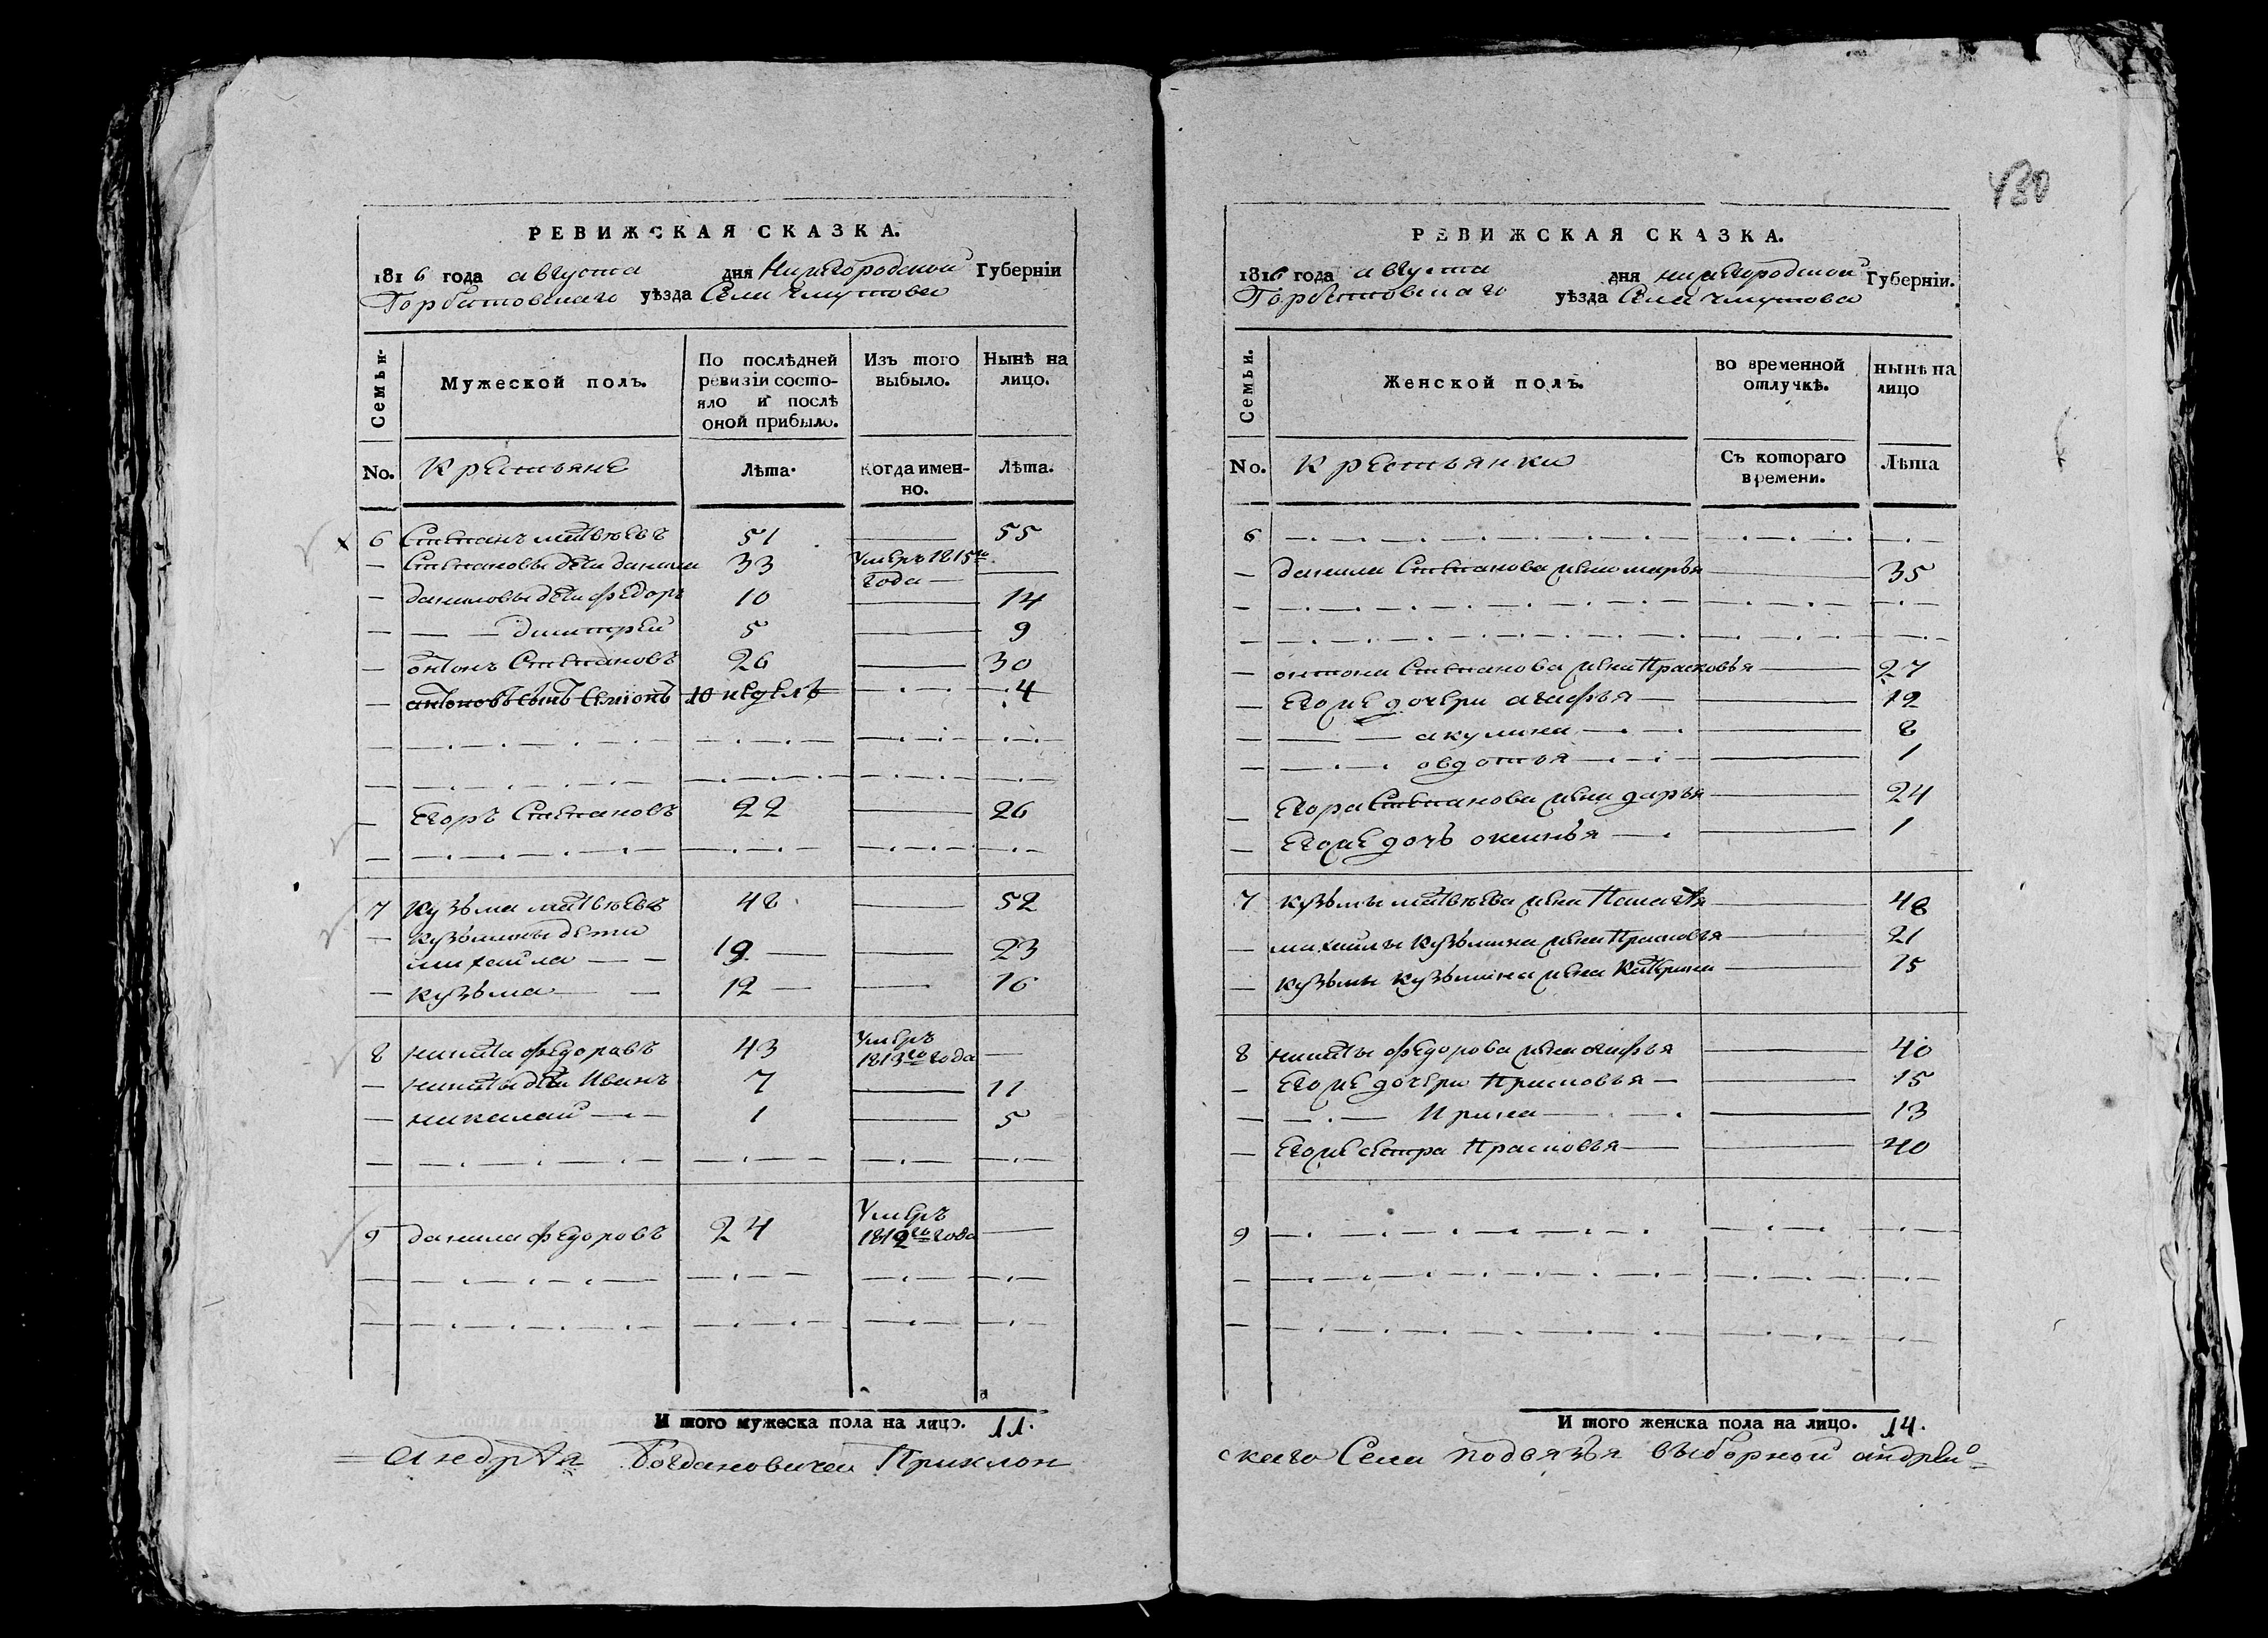 430
РЕВИЖСКАЯ СКАЗКА.
1816 года августа дня Нижегородской Губерніи
Горбатовскаго уѣзда Села Чмутова
Семьи.
Мужеской полъ.
По послѣдней ревизіи состояло и послѣ оной прибыло.
Изъ того выбыло.
Нынѣ на лицо.
No.
Крестьяне
Лѣта.
Когда именно.
Лѣта.
6 Степанъ матвѣевъ 51 55
Степановы дети данила 33 Умеръ 1815го года
даниловы дети федоръ 10 14
дмитрей 5 9
онтонъ Степановъ 26 30
антоновъ сынъ Семіонъ 10 недель 4
Егоръ Степановъ 22 26
7 кузьма матвѣевъ 48 52
кузьмины дети
михайла 19 23
кузьма 12 16
8 никита федоравъ 43 Умеръ 1813го года
никиты дети Иванъ 7 11
николай 1 5
9 данила федоровъ 24 Умеръ 1812го года
И того мужеска пола на лицо. 11.
андрѣя Богдановича Приклон
РЕВИЖСКАЯ СКАЗКА.
1816 года августа дня нижегородской Губерніи.
Горбатовскаго уѣзда Села чмутова
Семьи.
Женской полъ.
во временной отлучкѣ.
нынѣ на лицо
No.
Крестьянки
Съ котораго времени.
Лѣта
6
данила Степанова жена марья 35
онтона Степанова жена Прасковья 27
Его же дочери агафья 12
акулина 8
овдотья 1
Егора Степанова жена дарья 24
Его же дочь оксинья 1
7 кузьмы матвѣева жена Пелагѣя 48
михайлы кузьмина жена Прасковья 21
кузьмы кузьмина жена Катерина 15
8 никиты федорова жена агафья 40
Его же дочери Прасковья 15
Ирина 13
Его же сестра Прасковья 40
9
И того женска пола на лицо. 14.
скаго Села подвязья выборной андрей